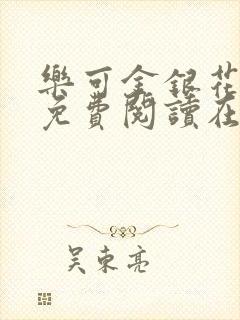 樂可金銀花
免費閱讀在
吴東亮